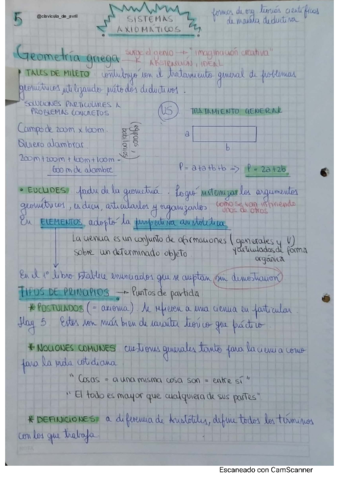 5
SISTEMAS
AXIOMÁTICOS
formas de org. teorías científicas
de manera deductiva.
Geometría griega
* TALES DE MILETO contribuyó con el tratamiento general de problemas
geométricos utilizando métodos deductivos.
SOLUCIONES PARTICULARES A
PROBLEMAS CONCRETOS
VS
TRATAMIENTO GENERAL
Campo de 200m x 100m.
Deseo alambrar
200m + 200m + 100m + 100m
600m de alambre
(egipcios, babilonios)
a
b
P = a+a+b+b => P = 2a+2b
* EUCLIDES: padre de la geometría. Logró sistematizar los argumentos
geométricos, es decir, articularlos y organizarlos.
En ELEMENTOS, adoptó la perspectiva aristotélica
La ciencia es un conjunto de afirmaciones (generales y
sobre un determinado objeto
vinculadas de forma
orgánica
En el 1º libro establece enunciados que se aceptan sin demostración
TIPOS DE PRINCIPIOS → Puntos de partida
* POSTULADOS (= axioma). Se refieren a una ciencia en particular.
Hay 5. Estos son más bien de ámbito teórico que práctico
* NOCIONES COMUNES: cuestiones generales tanto para la ciencia como
para la vida cotidiana.
"Cosas = a una misma cosa son = entre sí"
"El todo es mayor que cualquiera de sus partes"
* DEFINICIONES: a diferencia de Aristóteles, define todos los términos
con los que trabaja.
Escaneado con CamScanner